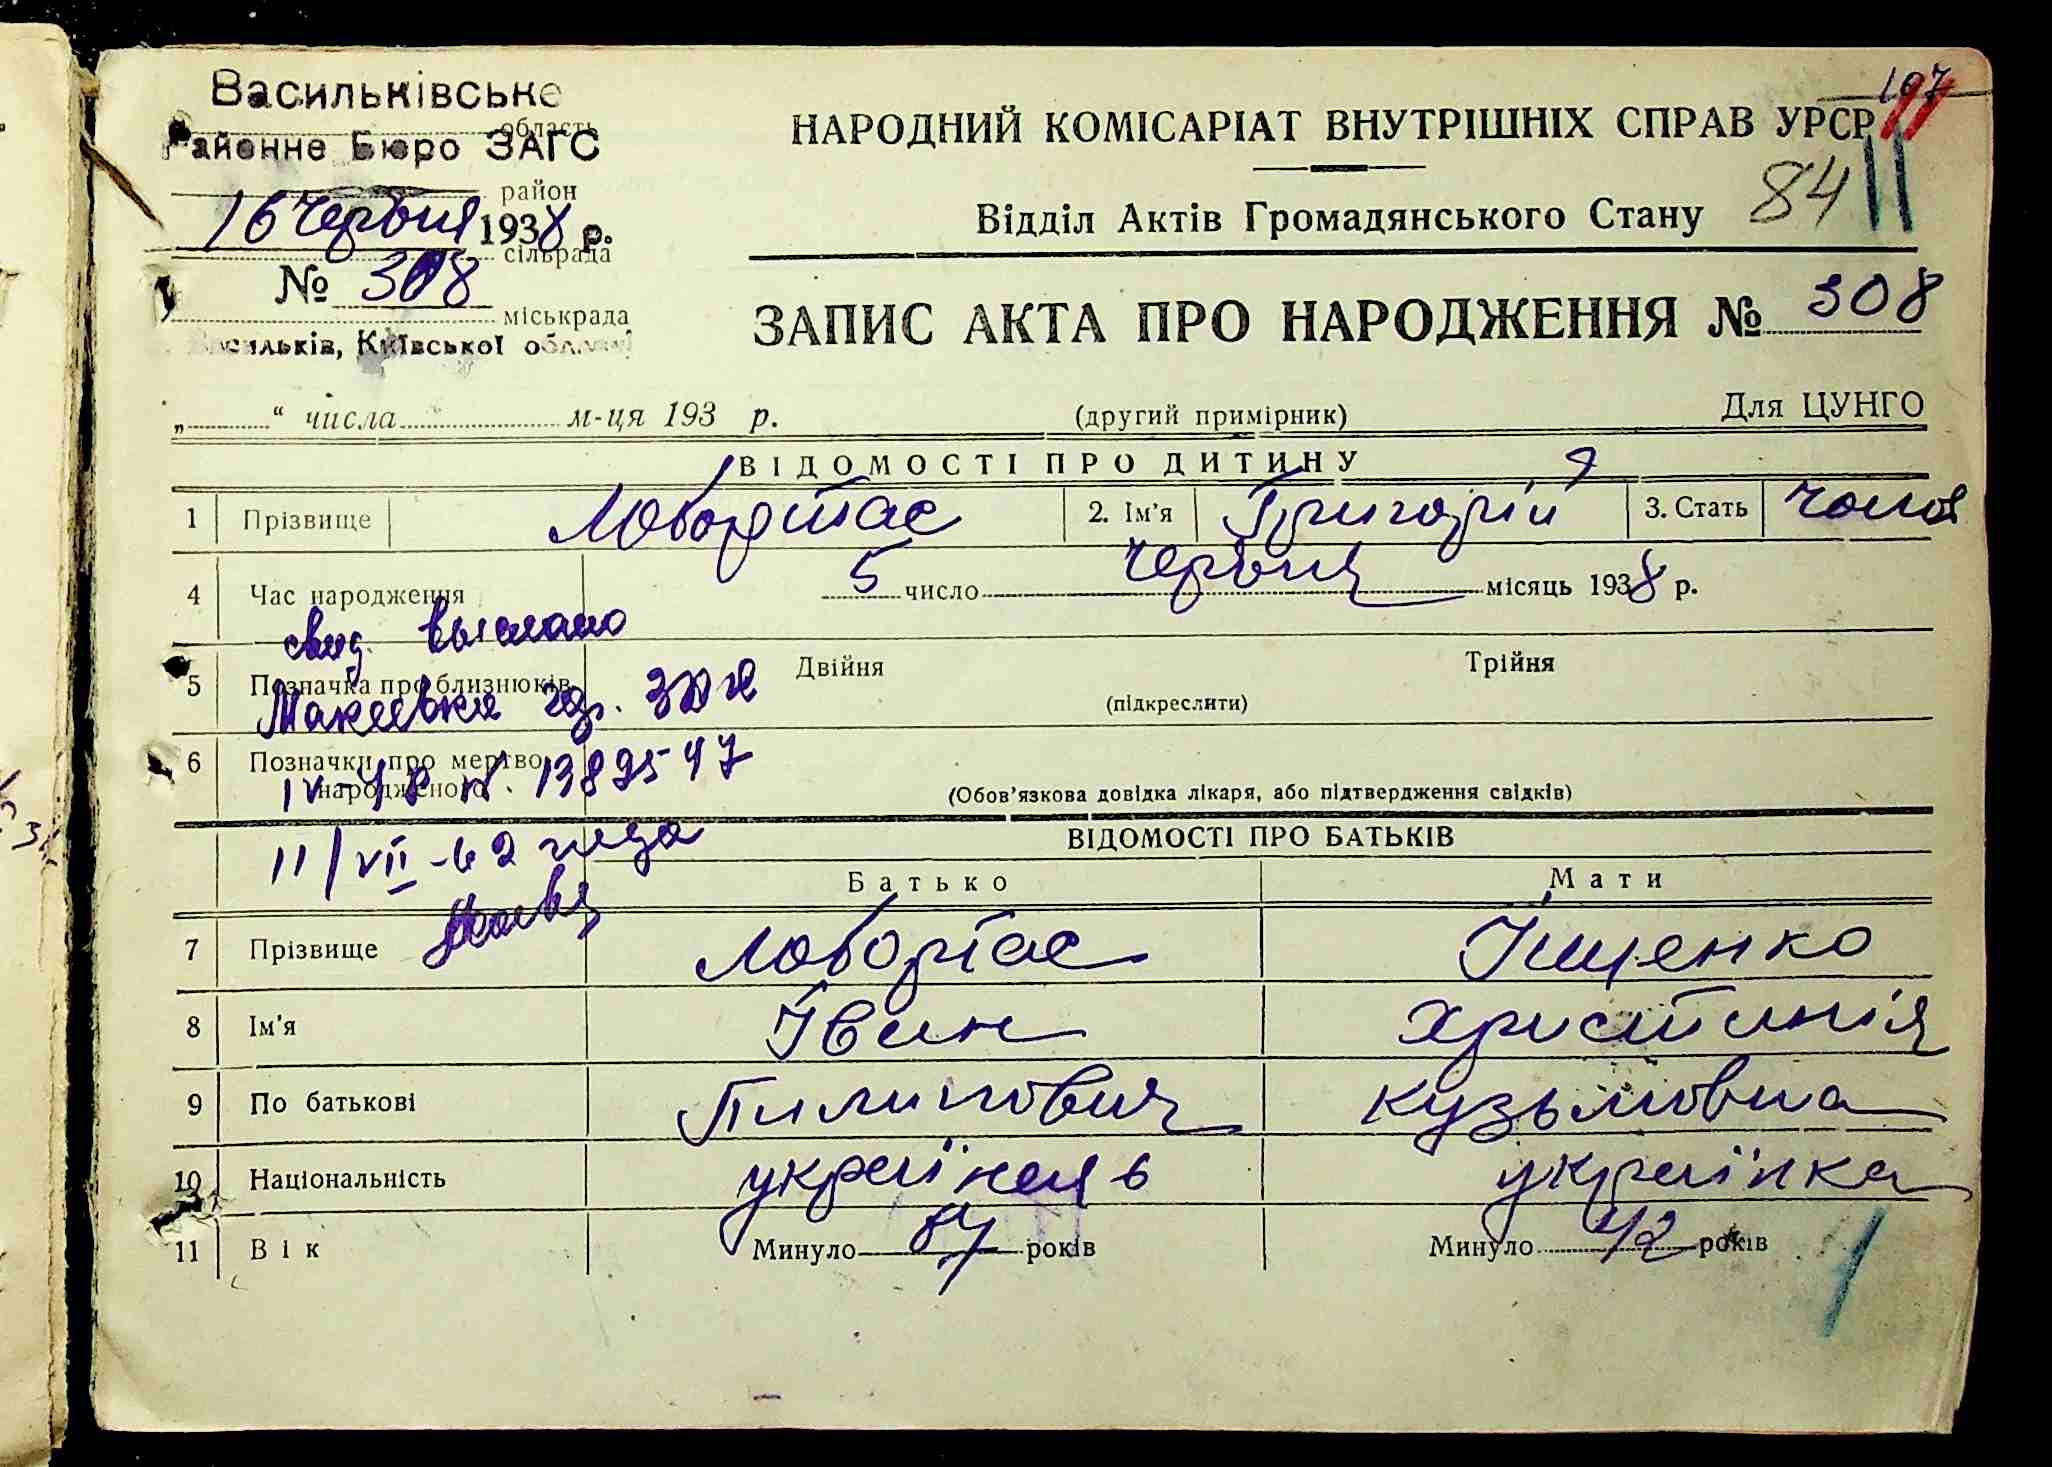 Васильківське
область
Районне Бюро ЗАГС
район
16 червня 1938 р.
сільрада
№ 308
міськрада
Васильків, Київської області
107
НАРОДНИЙ КОМІСАРІАТ ВНУТРІШНІХ СПРАВ УРСР
84
Відділ Актів Громадянського Стану
ЗАПИС АКТА ПРО НАРОДЖЕННЯ № 308
„ “ числа м-ця 193 р. (другий примірник) Для ЦУНГО
ВІДОМОСТІ ПРО ДИТИНУ
1 Прізвище Лобортас 2. Ім’я Григорій 3. Стать чолов
4 Час народження 5 число червня місяць 1938 р.
свид выслано
5 Позначка про близнюків Двійня Трійня
(підкреслити)
Макеевка гор.
6 Позначки про мертвонародженого
(Обов’язкова довідка лікаря, або підтвердження свідків)
11/VII-62 года
ВІДОМОСТІ ПРО БАТЬКІВ
Батько Мати
7 Прізвище Лобортас Іщенко
8 Ім’я Іван Христинія
9 По батькові Пилипович Кузьмовна
10 Національність українець українка
11 Вік Минуло років Минуло 42 років